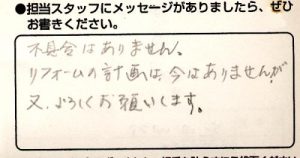 ●担当スタッフにメッセージがありましたら、ぜひ
お書きください。
不具合はありません。
リフォームの計画は、今はありませんが
又、よろしくお願いします。